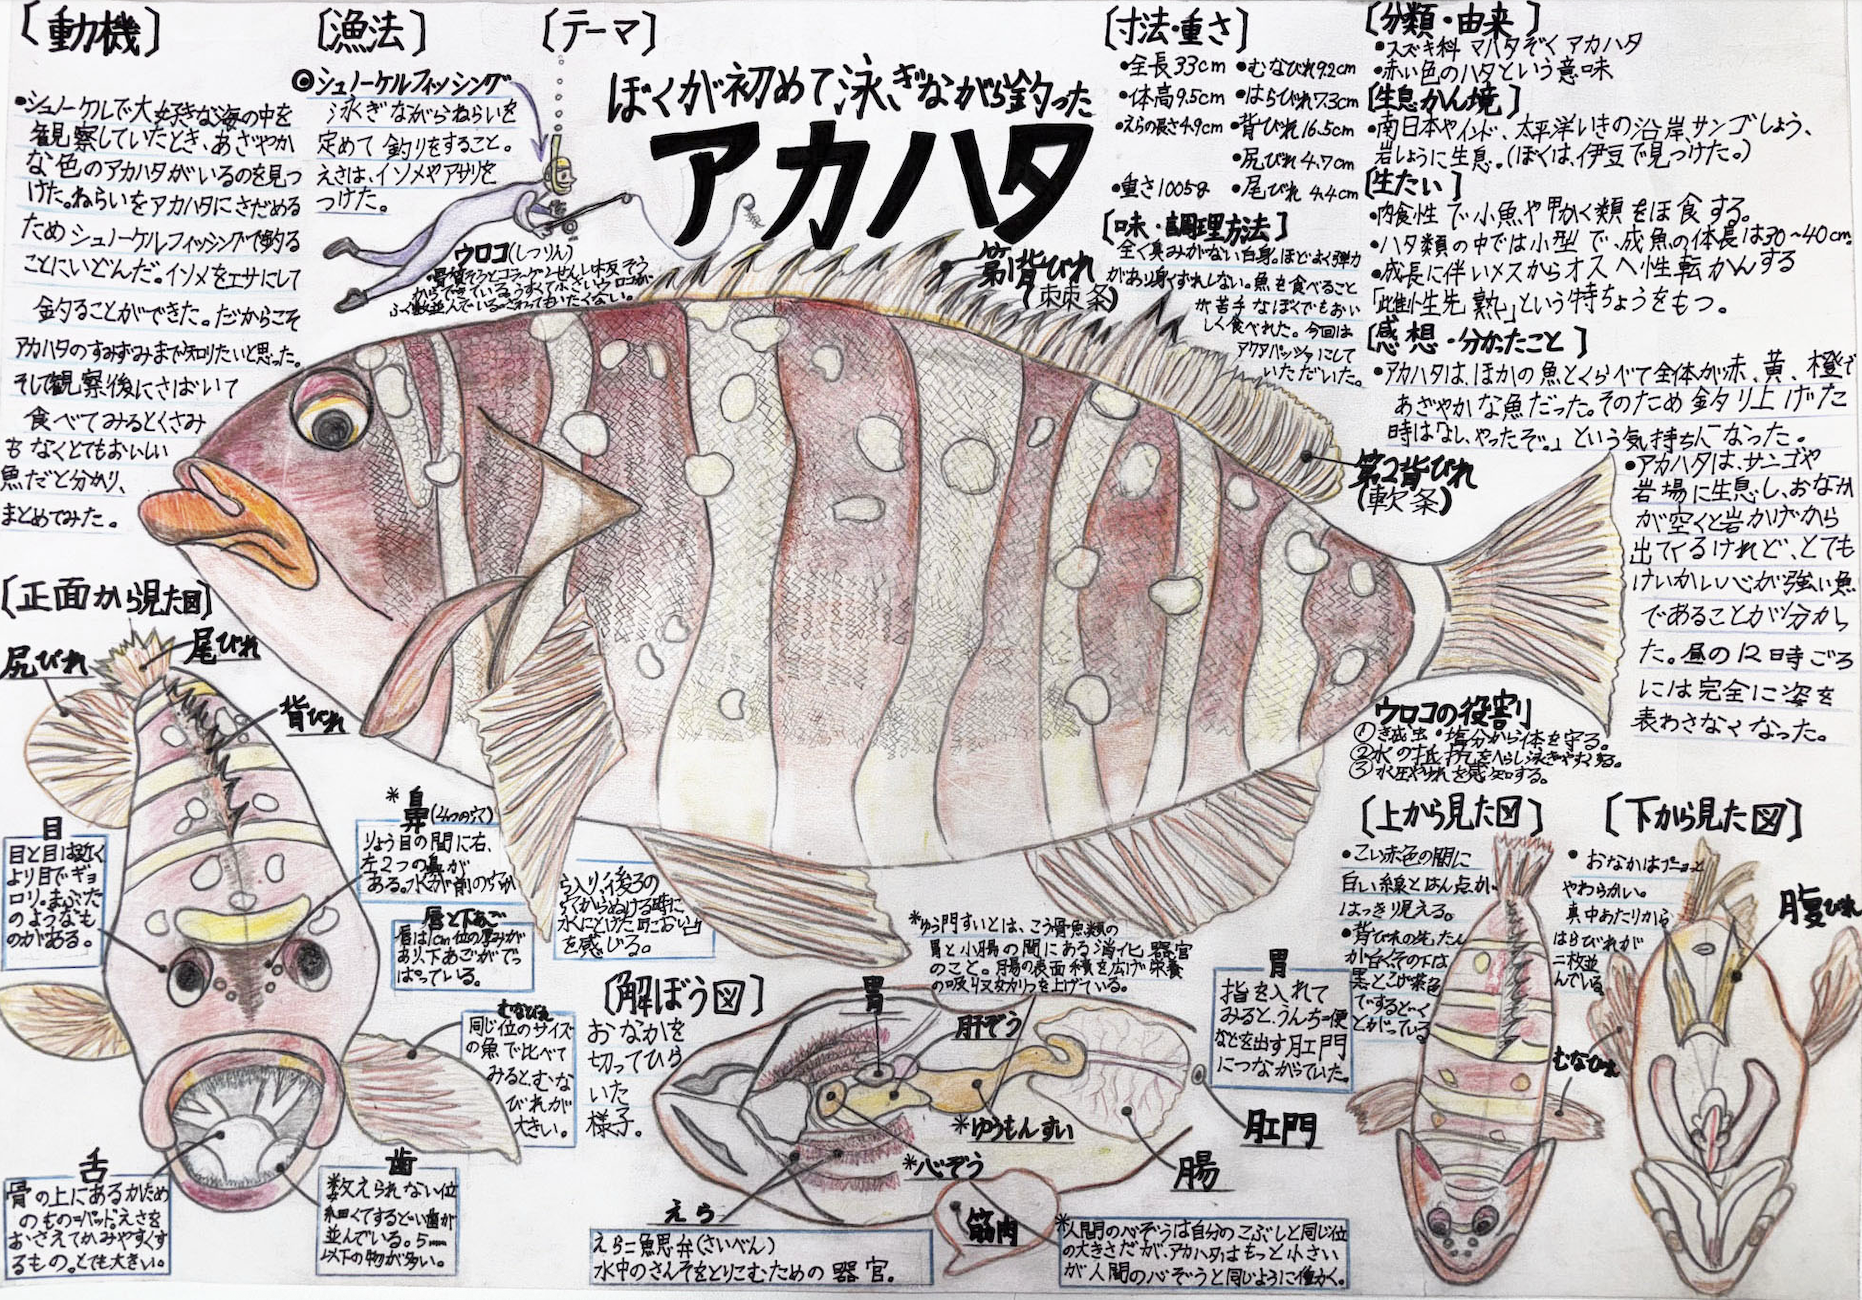 [動機]
・シュノーケルで大好きな海の中を
観察していたとき、あざやか
な色のアカハタがいるのを見つ
けた。ねらいをアカハタにさだめる
ためシュノーケルフィッシングで釣る
ことにいどんだ。イソメをエサにして
釣ることができた。だからこそ
アカハタのすみずみまで知りたいと思った。
そして観察後にさばいて
食べてみるとくさみ
もなくとてもおいしい
魚だと分かり、
まとめてみた。
[漁法]
◎シュノーケルフィッシング
泳ぎながらねらいを
定めて釣りをすること。
えさは、イソメやアサリを
つけた。
[テーマ]
ぼくが初めて泳ぎながら釣った
アカハタ
ウロコ(しつりん)
・骨質そうとコラーゲンせんい板そう
からできている。うすくて小さいウロコが
ふく数並んでいる。さわってもいたくない。
[寸法・重さ]
・全長33cm ・むなびれ9.2cm
・体高9.5cm ・はらびれ7.3cm
・えらの長さ4.9cm ・背びれ16.5cm
・尻びれ4.7cm
・重さ1005g ・尾びれ4.4cm
[味・調理方法]
全く臭みがない白身。ほどよく弾力
があり身くずれしない。魚を食べること
が苦手なぼくでもおい
しく食べれた。今回は
アクアパッツァにして
いただいた。
[分類・由来]
・スズキ科 マハタぞく アカハタ
・赤い色のハタという意味
[生息かん境]
・南日本やインド、太平洋いきの沿岸、サンゴしょう、
岩しょうに生息。(ぼくは、伊豆で見つけた。)
[生たい]
・肉食性で小魚や甲かく類をほ食する。
・ハタ類の中では小型で、成魚の体長は30~40cm
・成長に伴いメスからオスへ性転かんする
「雌性先熟」という特ちょうをもつ。
[感想・分かったこと]
・アカハタは、ほかの魚とくらべて全体が赤、黄、橙で
あざやかな魚だった。そのため釣り上げた
時は「よし、やったぞ。」という気持ちになった。
・アカハタは、サンゴや
岩場に生息し、おなか
が空くと岩かげから
出てくるけれど、とても
けいかい心が強い魚
であることが分かっ
た。昼の12時ごろ
には完全に姿を
表わさなくなった。
第1背びれ
(棘条)
第2背びれ
(軟条)
ウロコの役割
①き生虫・塩分から体を守る。
②水の抵抗をへらし泳ぎやすくする。
③水圧やゆれを感知する。
[正面から見た図]
尻びれ
尾びれ
背びれ
目
目と目は近く
より目でギョ
ロリ。まぶた
のようなも
のがある。
*鼻(4つの穴)
りょう目の間に右、
左2つの鼻が
ある。水が前の穴か
ら入り、後ろの
穴からぬける時に
水にとけたにおい
を感じる。
唇と下あご
唇は1cm位の厚みが
あり、下あごがでっ
ぱっている。
むなびれ
同じ位のサイズ
の魚で比べて
みると、むな
びれが
大きい。
舌
骨の上にあるかため
のもの=パッド。えさを
おさえてかみやすくす
るもの。とても大きい。
歯
数えられない位
細くてするどい歯が
並んでいる。5mm
以下の物が多い。
[解ぼう図]
おなかを
切ってひら
いた
様子。
*ゆう門すいとは、こう骨魚類の
胃と小腸の間にある消化器官
のこと。腸の表面積を広げ栄養
の吸収効りつを上げている。
胃
肝ぞう
*ゆうもんすい
*心ぞう
えら
筋肉
肛門
腸
胃
指を入れて
みると、うんち=便
などを出す肛門
につながっていた。
えら=魚思弁(さいべん)
水中のさんそをとりこむための器官。
*人間の心ぞうは自分のこぶしと同じ位
の大きさだが、アカハタはもっと小さい
が人間の心ぞうと同じように働く。
[上から見た図]
・こい赤色の間に
白い線とはん点が
はっきり見える。
・背びれの先たん
が白くその下は
黒とこげ茶色
でするどく
とがっている
[下から見た図]
・おなかはプニョっと
やわらかい。
真中あたりから
はらびれが
二枚並
んでいる。
腹びれ
むなびれ